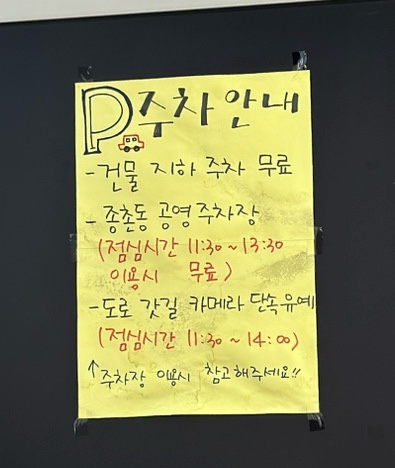 P 주차 안내
- 건물 지하 주차 무료
- 종촌동 공영주차장
(점심시간 11:30 ~ 13:30
이용시 무료)
- 도로 갓길 카메라 단속유예
(점심시간 11:30 ~ 14:00)
↑ 주차장 이용시 참고해주세요!!